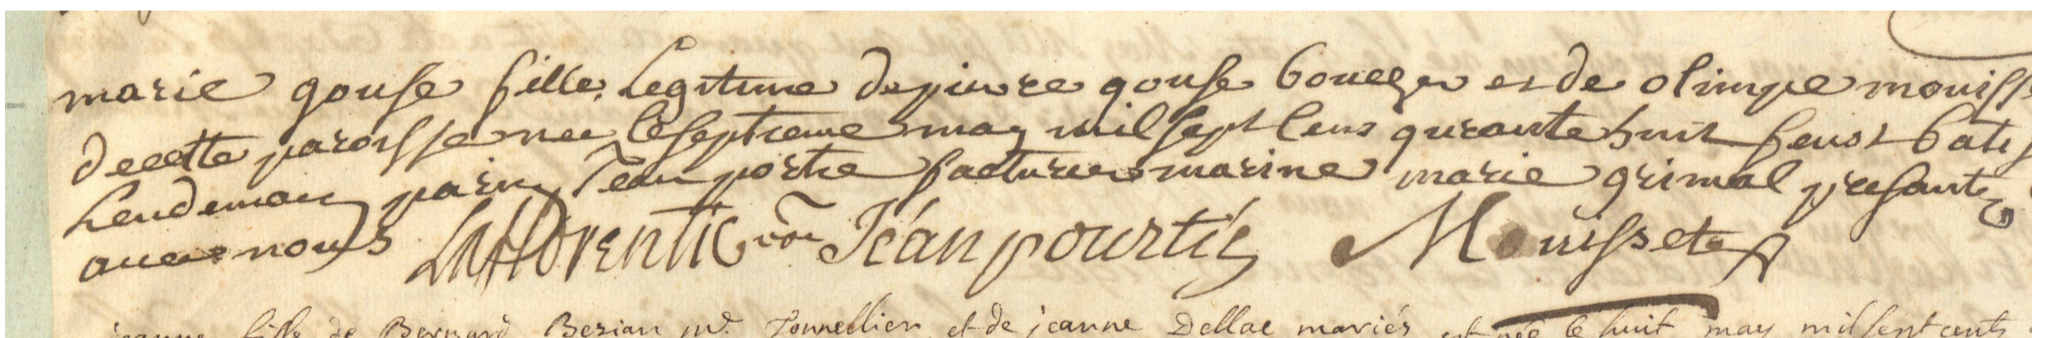 marie gouse fille Legitime de pierre gouse boucher et de olimpe mouisse
de cette paroisse nee le septieme may mil sept cens quarante huit feust batis
Lendemain parin Jean portie facturier marine marie grimal presants
avec nous Lafflorentie vic Jean pourtié Mouisset
jeanne fille de Bernard Bezian me Tonnellier et de jeanne Dellac mariés est née le huit may mil sept cents